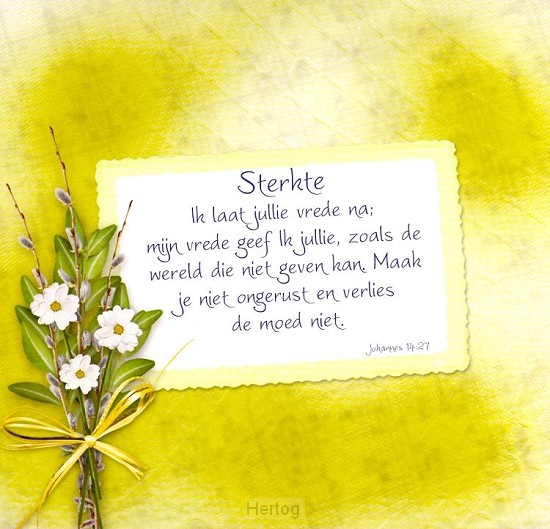 Sterkte
Ik laat jullie vrede na;
mijn vrede geef Ik jullie, zoals de
wereld die niet geven kan. Maak
je niet ongerust en verlies
de moed niet.
Johannes 14:27
Hertog